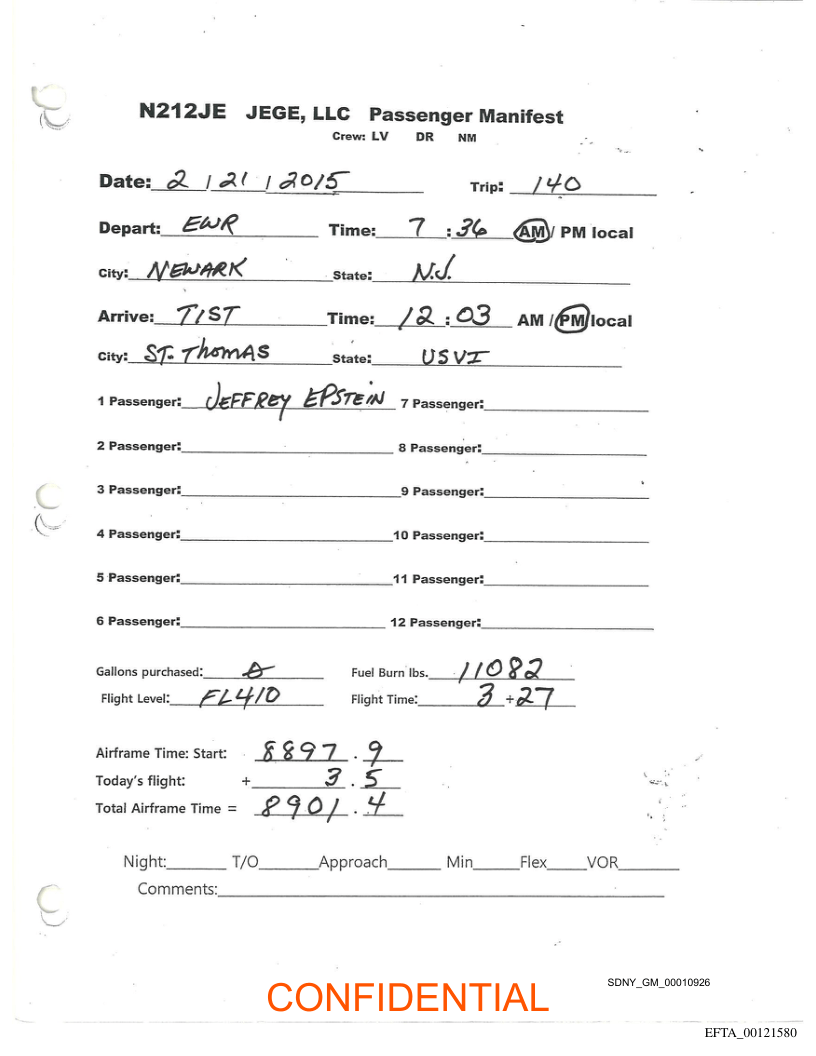 N212JE JEGE, LLC Passenger Manifest
Crew: LV DR NM
Date: 2 / 21 / 2015 Trip: 140
Depart: EWR Time: 7 : 36 AM / PM local
City: NEWARK State: N.J.
Arrive: TIST Time: 12 : 03 AM / PM local
City: ST. THOMAS State: USVI
1 Passenger: JEFFREY EPSTEIN 7 Passenger:
2 Passenger: 8 Passenger:
3 Passenger: 9 Passenger:
4 Passenger: 10 Passenger:
5 Passenger: 11 Passenger:
6 Passenger: 12 Passenger:
Gallons purchased: 0 Fuel Burn lbs. 11082
Flight Level: FL410 Flight Time: 3 + 27
Airframe Time: Start: 8897 . 9
Today's flight: + 3 . 5
Total Airframe Time = 8901 . 4
Night: T/O Approach Min Flex VOR
Comments:
SDNY_GM_00010926
CONFIDENTIAL
EFTA_00121580